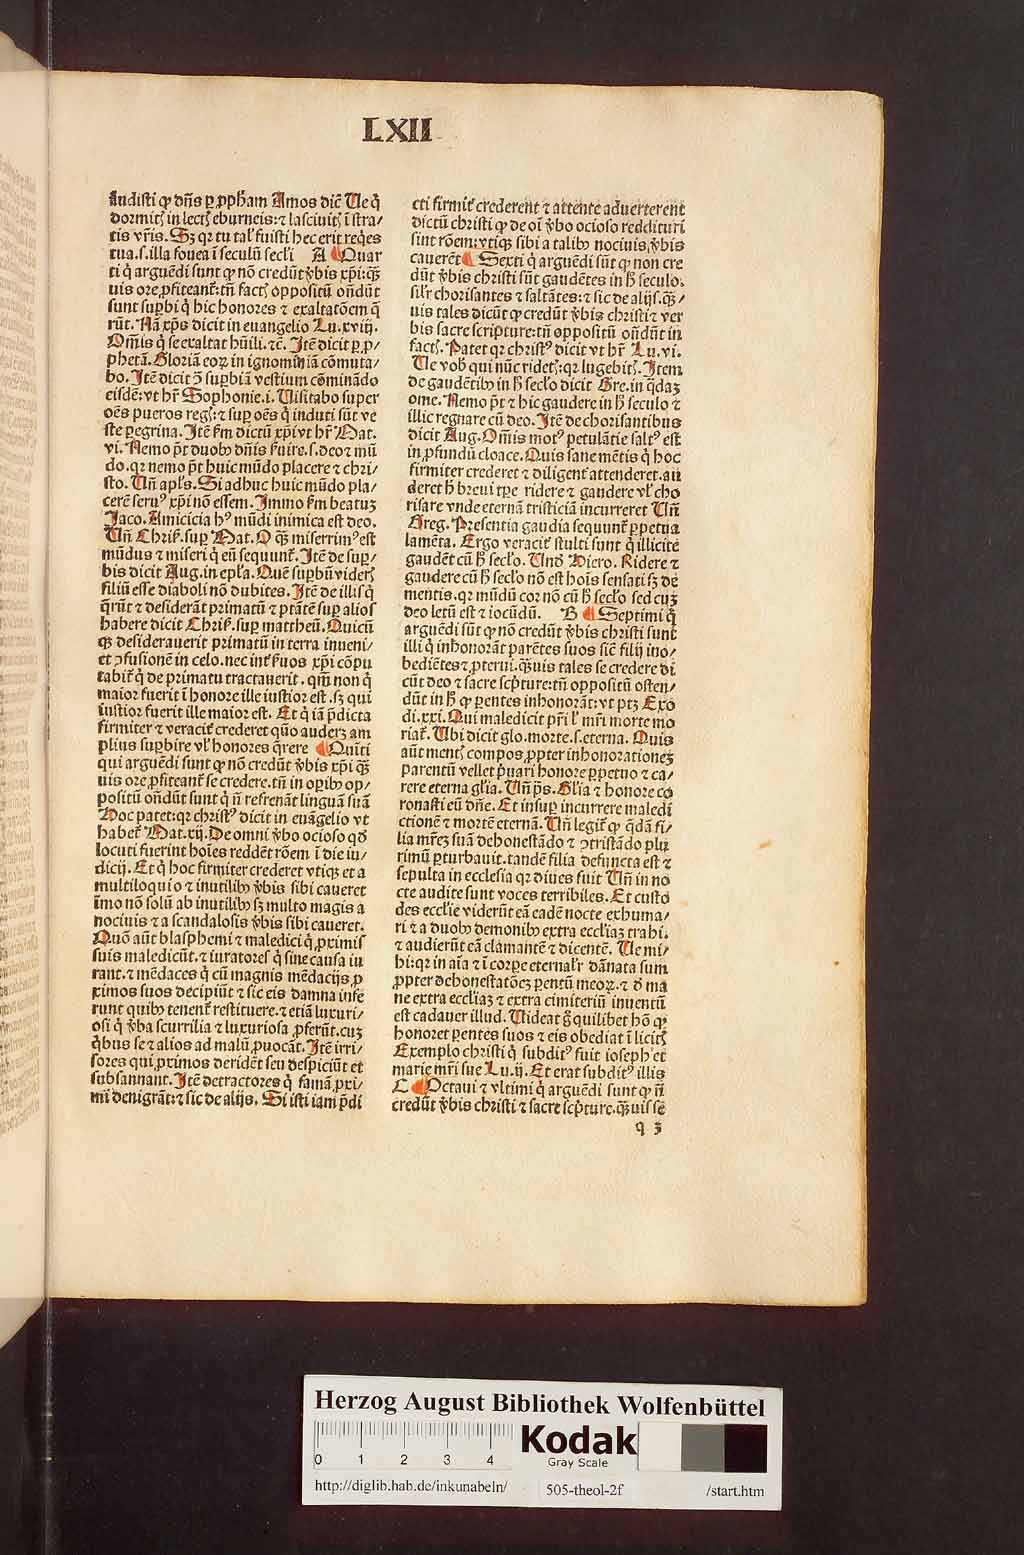 LXII
Audisti ꝙ dñs ꝑ ꝓpħam Amos dic̄ Ue q̇
dormitꝭ in lectꝭ eburneis: ⁊ lasciuitꝭ ī stra/
tis vr̄is. Sꝫ qꝛ tu tal' fuisti hec erit reqͥes
tua. s. illa fouea ī seculū secl'i A ¶ Quar
ti q̇ arguēdi sunt ꝙ nō credūt v̓bis xp̄i: qꝫ̄
uis ore ꝓfiteant᷑: tn̄ factꝭ oppositū on̄dūt
sunt suꝑbi q̇ hic honores ⁊ exaltatōem q̄
rūt. Nā xp̄s dicit in euangelio Lu. xviij.
Om̄is q̇ se exaltat hūili. ⁊c̄. Itē dicit ꝑ ꝓ/
phetā. Gloriā eoꝝ in ignominiā cōmuta/
bo. Itē dicit ↄ̄ suꝑbiā vestium cōminādo
eisdē: vt hr̄ Sophonie. i. Uisitabo super
oēs pueros regꝭ: ⁊ suꝑ oēs q̇ induti sūt ve
ste ꝑegrina. Itē ẜm dictū xp̄i vt hr̄ Mat.
vi. Nemo pōt duobꝰ dn̄is ẜuire. s. deo ⁊ mū
do. qꝛ nemo pōt huic mūdo placere ⁊ chri/
sto. Un̄ apl's. Si adhuc huic mūdo pla/
cerē seruꝰ xp̄i nō essem. Immo ẜm beatuꝫ
Jaco. Amicicia hꝰ mūdi inimica est deo.
Un̄ Chriẜ. suꝑ Mat. O qꝫ̄ miserrimꝰ est
mūdus ⁊ miseri q̇ eū sequunt᷑. Itē de suꝑ/
bis dicit Aug. in epl'a. Quē suꝑbū viderꝭ
filiū esse diaboli nō dubites. Itē de illis q̇
q̄rūt ⁊ desiderāt primatū ⁊ ptātē suꝑ alios
habere dicit Chriẜ. suꝑ mattheū. Quicū
qꝫ desiderauerit primatū in terra inueni/
et ↄfusionē in celo. nec int᷑ ẜuos xp̄i cōpu
tabit᷑ q̇ de primatu tractauerit. qm̄ non q̇
maior fuerit ī honore ille iustior est. sꝫ qui
iustior fuerit ille maior est. Et q̇ iā p̄dicta
firmiter ⁊ veracit᷑ crederet quō auderꝫ am
plius suꝑbire vl' honores q̄rere ¶ Quīti
qui arguēdi sunt ꝙ nō credūt v̓bis xp̄i qꝫ̄
uis ore ꝓfiteant᷑ se credere. tn̄ in oꝑibꝰ op/
positū on̄dūt sunt q̇ n̄ refrenāt linguā suā
Hoc patet: qꝛ christꝰ dicit in euāgelio vt
habet᷑ Mat. xij. De omni v̓bo ocioso qð
locuti fuerint hoīes reddēt rōem ī die iu/
dicij. Et q̇ hoc firmiter crederet vtiqꝫ et a
multiloquio ⁊ inutilibꝰ v̓bis sibi caueret
īmo nō solū ab inutilibꝰ sꝫ multo magis a
nociuis ⁊ a scandalosis v̓bis sibi caueret.
Quō aūt blasphemi ⁊ maledici q̇ ꝓximis
suis maledicūt. ⁊ iuratores q̇ sine causa iu
rant. ⁊ mēdaces q̇ cū magnis mēdacijs ꝓ
ximos suos decipiūt ⁊ sic eis damna infe
runt quibꝰ tenent᷑ restituere. ⁊ etiā luxuri/
osi q̇ v̓ba scurrilia ⁊ luxuriosa ꝓferūt. cuꝫ
q̇bus se ⁊ alios ad malū ꝓuocāt. Itē irri/
sores qui ꝓximos deridēt seu despiciūt et
subsannant. Itē detractores q̇ famā ꝓxi/
mi denigrāt: ⁊ sic de alijs. Si isti iam p̄di
cti firmit᷑ crederent ⁊ attente aduerterent
dictū christi ꝙ de oī v̓bo ocioso reddituri
sint rōem: vtiqꝫ sibi a talibꝰ nociuis v̓bis
cauerēt ¶ Sexti q̇ arguēdi sūt ꝙ non cre
dūt v̓bis christi sūt gaudētes in h̄ seculo.
sil'r chorisantes ⁊ saltātes: ⁊ sic de alijs. qꝫ̄/
uis tales dicūt ꝙ credūt v̓bis christi ⁊ ver
bis sacre scripture: tn̄ oppositū on̄dūt in
factꝭ. Patet qꝛ christꝰ dicit vt hr̄ Lu. vi.
Ue vobꝭ qui nūc ridetꝭ: qꝛ lugebitꝭ. Item
de gaudētibꝰ in h̄ secl'o dicit Gre. in q̇daꝫ
ome. Nemo pōt ⁊ hic gaudere in h̄ seculo ⁊
illic regnare cū deo. Itē de chorisantibus
dicit Aug. Om̄is motꝰ petulātie saltꝰ est
in ꝓfundū cloace. Quis sane mētis q̇ hoc
firmiter crederet ⁊ diligent᷑ attenderet. au
deret h̄ breui tꝑe ridere ⁊ gaudere vl' cho
risare vnde eternā tristiciā incurreret Un̄
Greg. Presentia gaudia sequunt᷑ ꝑpetua
lamēta. Ergo veracit᷑ stulti sunt q̇ illicite
gaudēt cū h̄ secl'o. Unð Hiero. Ridere ⁊
gaudere cū h̄ secl'o nō est hoīs sensati sꝫ de
mentis. qꝛ mūdū cor nō cū h̄ secl'o sed cuꝫ
deo letū est ⁊ iocūdū. B ¶ Septimi q̇
arguēdi sūt ꝙ nō credūt v̓bis christi sunt
illi q̇ inhonorāt parētes suos sicē filij ino/
bediētes ⁊ ꝓterui. qꝫ̄uis tales se credere di
cūt deo ⁊ sacre scp̄ture: tn̄ oppositū osten/
dūt in h̄ ꝙ parentes inhonorāt: vt ptꝫ Exo
di. xxi. Qui maledicit pr̄i l' mr̄i morte mo
riat᷑. Ubi dicit glo. morte. s. eterna. Quis
aūt mentꝭ compos ꝓpter inhonorationeꝫ
parentū vellet p̄uari honore ꝑpetuo ⁊ ca/
rere eterna gl'ia. Un̄ ps̄. Gl'ia ⁊ honore co
ronasti eū dn̄e. Et insuꝑ incurrere maledi
ctionē ⁊ mortē eternā. Un̄ legit᷑ ꝙ q̇dā fi/
lia mr̄eꝫ suā dehonestādo ⁊ ↄtristādo plu
rimū ꝑturbauit. tandē filia defuncta est ⁊
sepulta in ecclesia qꝛ diues fuit Un̄ in no
cte audite sunt voces terribiles. Et custo
des eccl'ie viderūt eā eadē nocte exhuma/
ri ⁊ a duobꝰ demonibꝰ extra eccl'iaꝫ trahi.
⁊ audierūt eā clamantē ⁊ dicentē. Ue mi/
hi: qꝛ in aīa ⁊ ī corꝑe eternal'r dānata sum
ꝓpter dehonestatōeꝫ ꝑentū meoꝝ. ⁊ ð ma
ne extra eccl'iaꝫ ⁊ extra cimiteriū inuentū
est cadauer illud. Uideat g̊ quilibet hō ꝙ
honoret ꝑentes suos ⁊ eis obediat ī licitꝭ
Exemplo christi q̇ subditꝰ fuit ioseph et
marie mr̄i sue Lu. ij. Et erat subditꝰ illis
C ¶ Octaui ⁊ vltimi q̇ arguēdi sunt ꝙ n̄
credūt v̓bis christi ⁊ sacre scp̄ture. qꝫ̄uis se
q 3
Herzog August Bibliothek Wolfenbüttel
0 1 2 3 4
Kodak
Gray Scale
http://diglib.hab.de/inkunabeln/ 505-theol-2f /start.htm